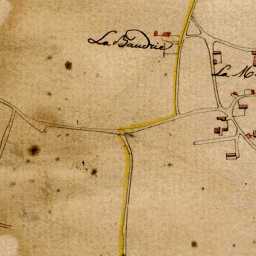 La Baudrie
La M